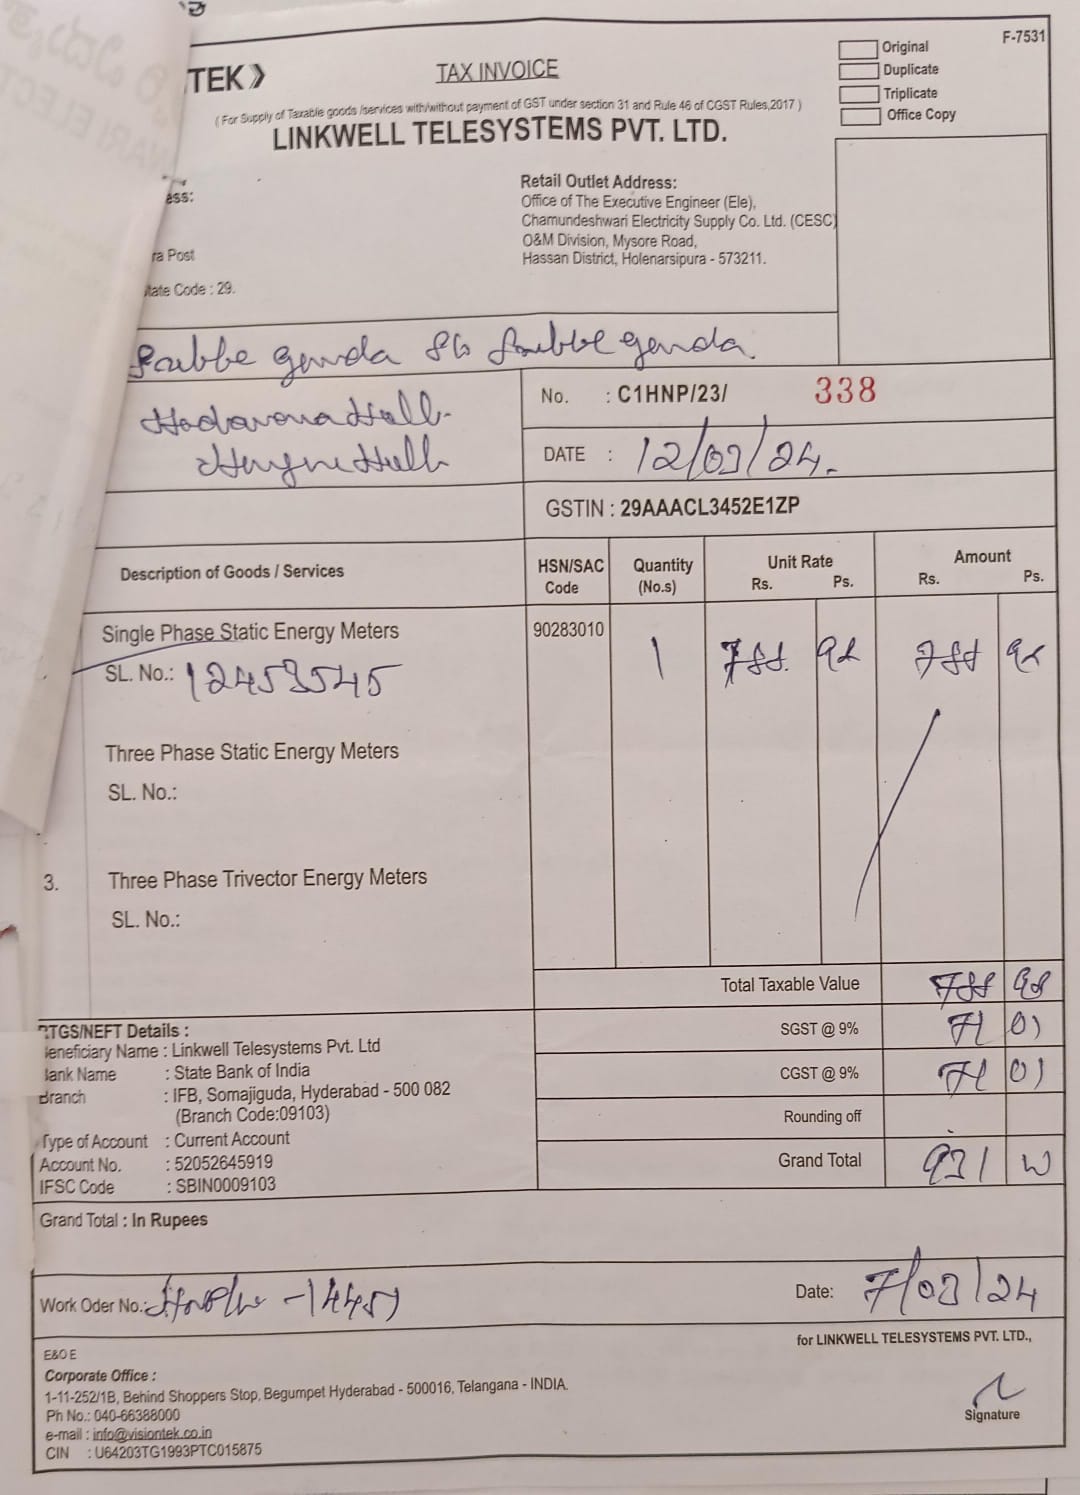 TEK》
TAX INVOICE
F-7531
Original
Duplicate
Triplicate
Office Copy
( For Supply of Taxable goods /services with/without payment of GST under section 31 and Rule 46 of CGST Rules,2017 )
LINKWELL TELESYSTEMS PVT. LTD.
ess:
ra Post
tate Code : 29.
Retail Outlet Address:
Office of The Executive Engineer (Ele),
Chamundeshwari Electricity Supply Co. Ltd. (CESC)
O&M Division, Mysore Road,
Hassan District, Holenarsipura - 573211.
No. : C1HNP/23/ 338
DATE : 12/03/24.
GSTIN : 29AAACL3452E1ZP
Description of Goods / Services
HSN/SAC Code
Quantity (No.s)
Unit Rate Rs. Ps.
Amount Rs. Ps.
Single Phase Static Energy Meters 90283010 1
SL. No.: 12453545
Three Phase Static Energy Meters
SL. No.:
3. Three Phase Trivector Energy Meters
SL. No.:
Total Taxable Value
SGST @ 9% 71 01
CGST @ 9% 71 01
Rounding off
Grand Total 931
RTGS/NEFT Details :
Beneficiary Name : Linkwell Telesystems Pvt. Ltd
Bank Name : State Bank of India
Branch : IFB, Somajiguda, Hyderabad - 500 082
(Branch Code:09103)
Type of Account : Current Account
Account No. : 52052645919
IFSC Code : SBIN0009103
Grand Total : In Rupees
Work Oder No.:
Date: 7/03/24
for LINKWELL TELESYSTEMS PVT. LTD.,
E&O E
Corporate Office :
1-11-252/1B, Behind Shoppers Stop, Begumpet Hyderabad - 500016, Telangana - INDIA.
Ph No.: 040-66388000
e-mail : info@visiontek.co.in
CIN : U64203TG1993PTC015875
Signature